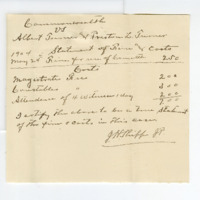 Commonwealth
vs
Albert Turner & Turner
1904 Statement of Fine & Costs
May 25 Fine for one of
Costs
Magistrate Fees 2.00
Constables " 3.00
Attendance of 4 Witnesses 1 day 2.00
I certify the above to be a true Statement
of the fine & costs in this case
J.P.